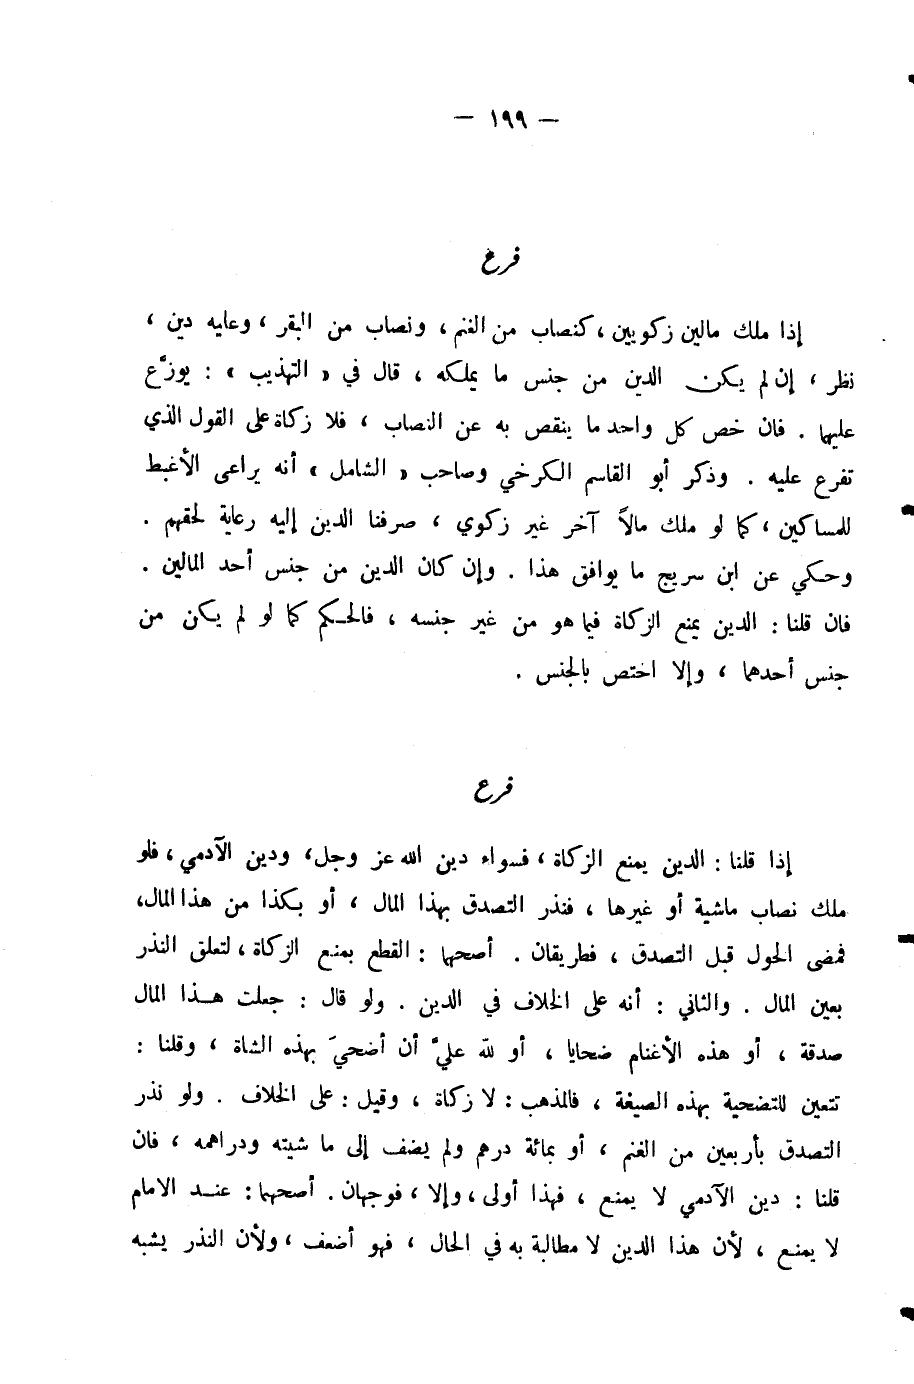 — ١٩٩ —
فرع
إذا ملك مالين زكويين ، كنصاب من الغنم ، ونصاب من البقر ، وعليه دين ،
نظر ، إن لم يكن الدين من جنس ما يملكه ، قال في « التهذيب » : يوزَّع
عليها . فان خص كل واحد ما ينقص به عن النصاب ، فلا زكاة على القول الذي
تفرع عليه . وذكر أبو القاسم الكرخي وصاحب « الشامل » أنه يراعى الأغبط
للمساكين ، كما لو ملك مالاً آخر غير زكوي ، صرفنا الدين إليه رعاية لحقهم .
وحكي عن ابن سريج ما يوافق هذا . وإن كان الدين من جنس أحد المالين .
فان قلنا : الدين يمنع الزكاة فيما هو من غير جنسه ، فالحكم كما لو لم يكن من
جنس أحدهما ، وإلا اختص بالجنس .
فرع
إذا قلنا : الدين يمنع الزكاة ، فسواء دين الله عز وجل ، ودين الآدمي ، فلو
ملك نصاب ماشية أو غيرها ، فنذر التصدق بهذا المال ، أو بكذا من هذا المال،
فمضى الحول قبل التصدق ، فطريقان . أصحها : القطع بمنع الزكاة ، لتعلق النذر
بعين المال . والثاني : أنه على الخلاف في الدين . ولو قال : جعلت هذا المال
صدقة ، أو هذه الأغنام ضحايا ، أو لله عليَّ أن أضحيَ بهذه الشاة ، وقلنا :
تتعين للتضحية بهذه الصيغة ، فالمذهب : لا زكاة ، وقيل : على الخلاف . ولو نذر
التصدق بأربعين من الغنم ، أو بمائة درهم ولم يضف إلى ما شيته ودراهمه ، فان
قلنا : دين الآدمي لا يمنع ، فهذا أولى ، وإلا ، فوجهان . أصحهما : عند الامام
لا يمنع ، لأن هذا الدين لا مطالبة به في الحال ، فهو أضعف ، ولأن النذر يشبه